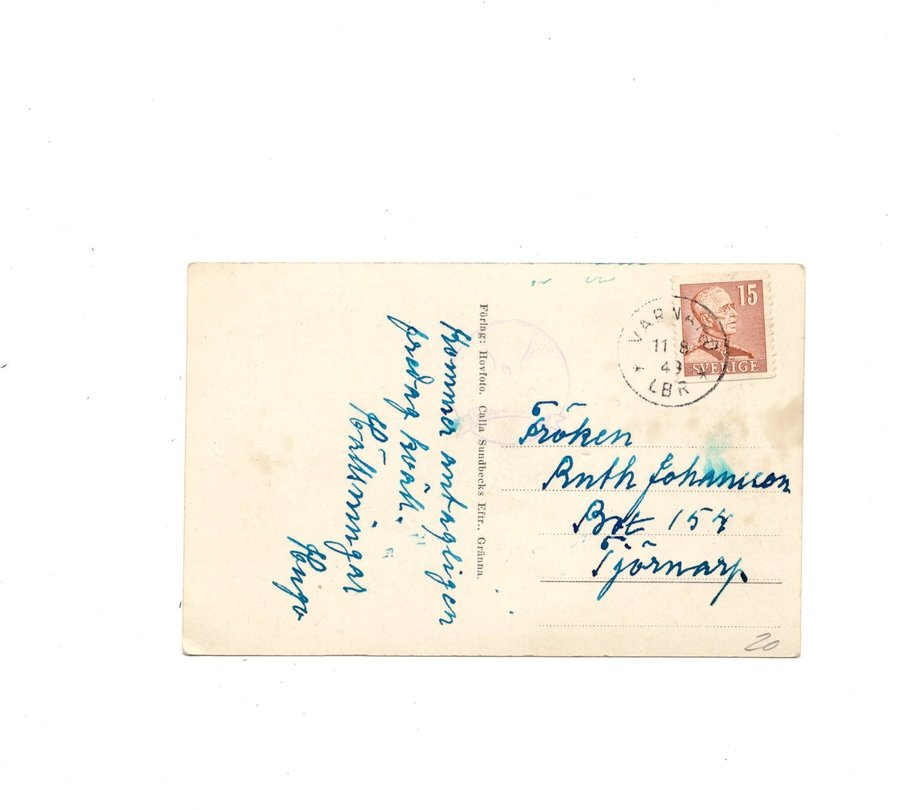 Kommer antagligen
fredag kväll.
Hälsningar
Hugo
Förlag: Hovfoto. Calla Sundbecks Eftr., Gränna.
15
SVERIGE
11 8
LBR
Fröken
Ruth Johansson
Tjörnarp
20